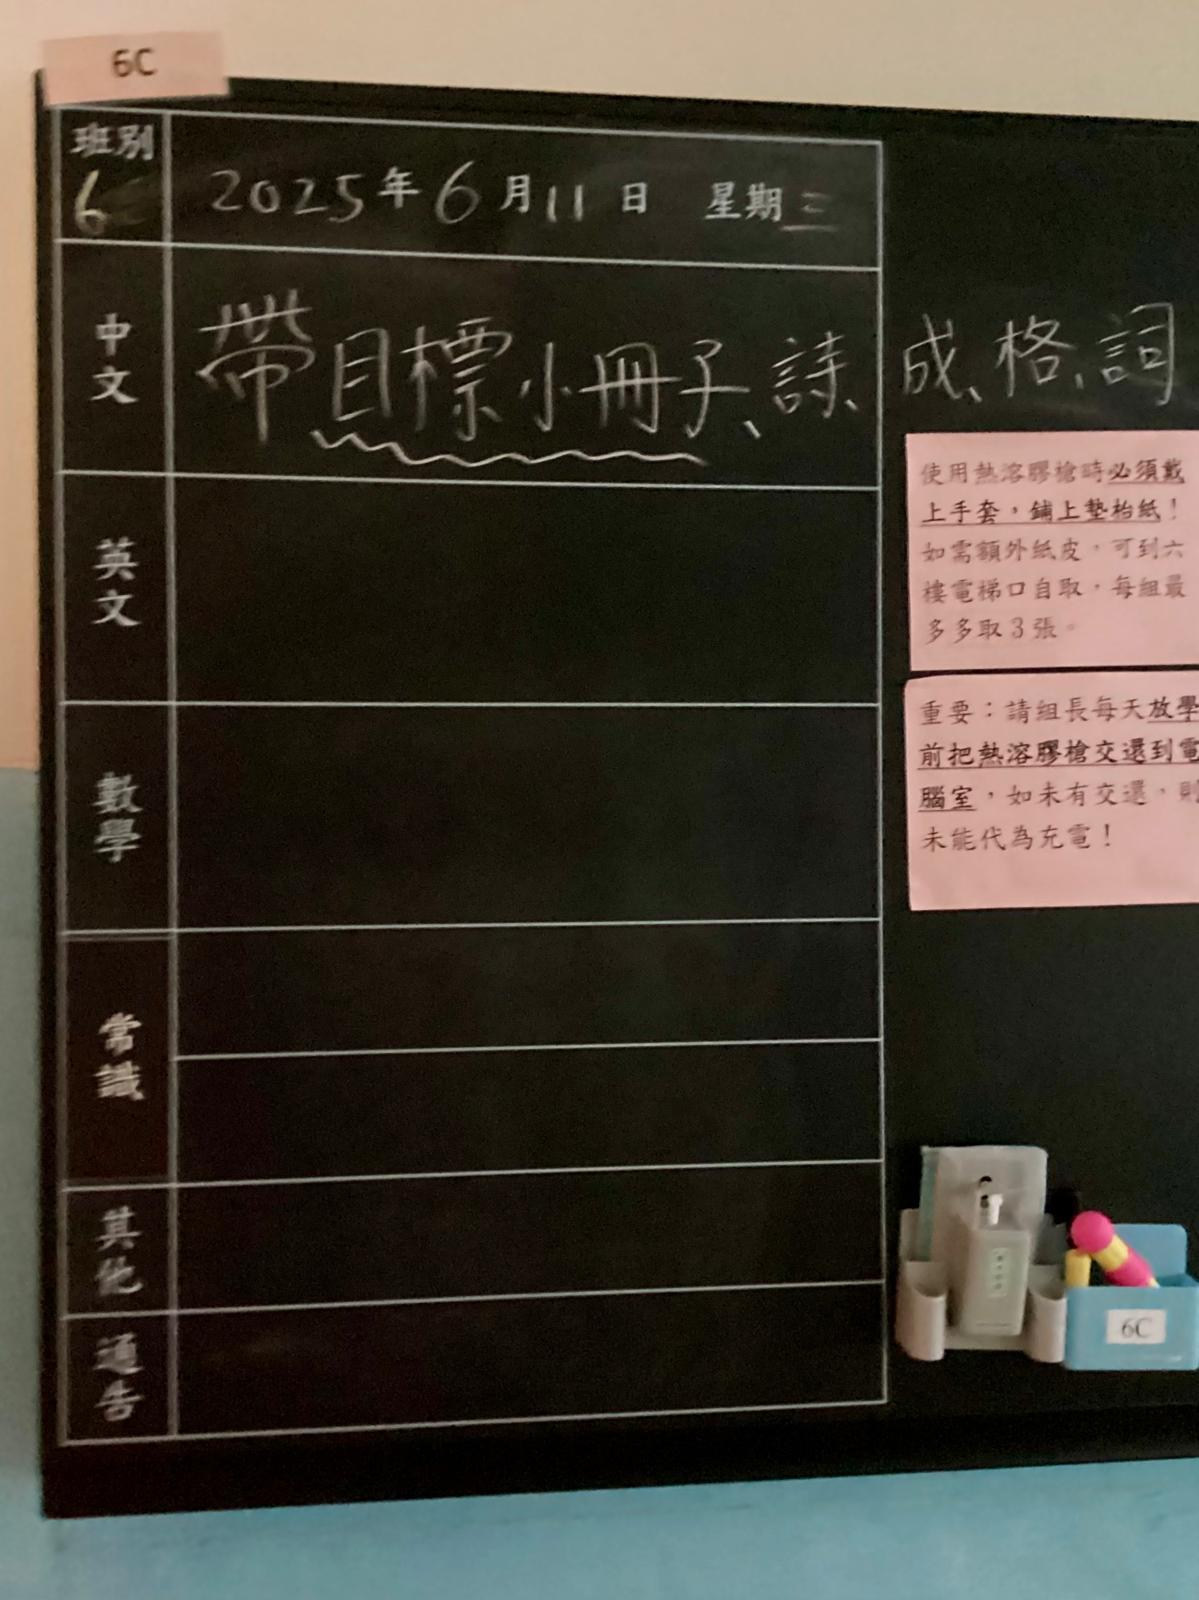 6C
班別
6C
2025年6月11日 星期三
中文
帶目標小冊子、詩、成、格、詞
英文
數學
常識
其他
通告
使用熱溶膠槍時必須戴
上手套,鋪上墊枱紙!
如需額外紙皮,可到六
樓電梯口自取,每組最
多多取3張。
重要:請組長每天放學
前把熱溶膠槍交還到電
腦室,如未有交還,則
未能代為充電!
6C